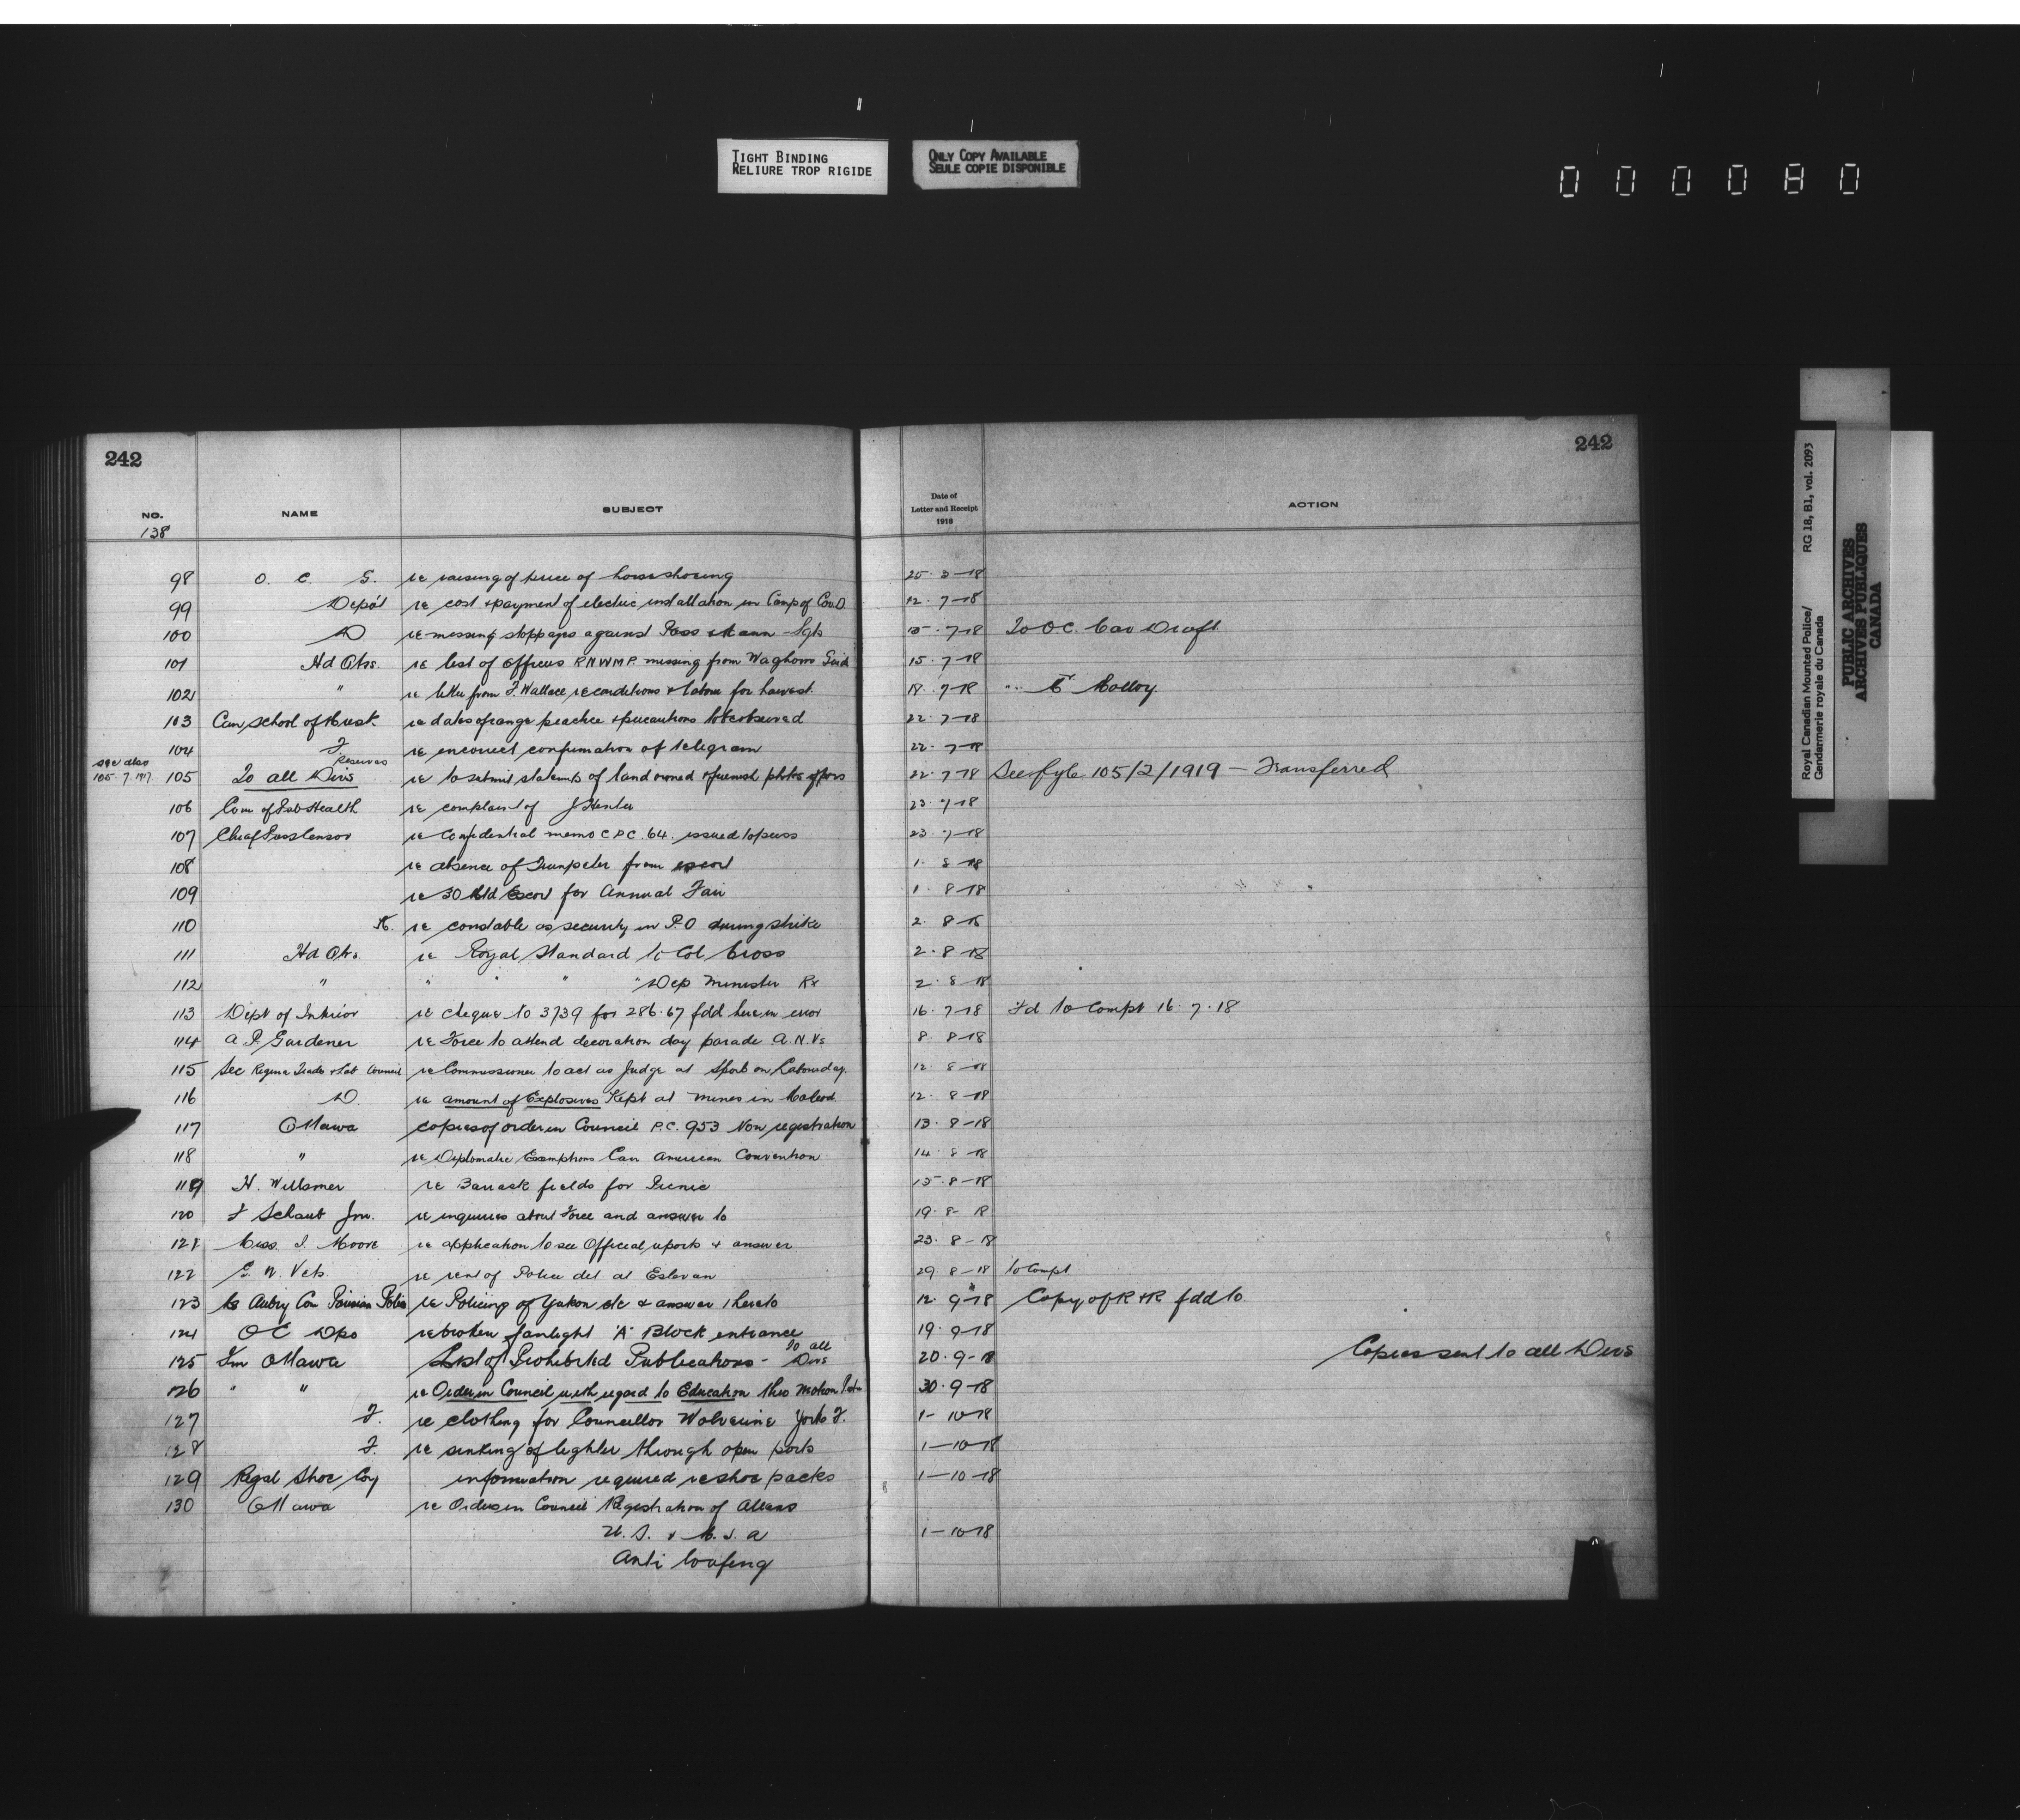 TIGHT BINDING
RELIURE TROP RIGIDE
ONLY COPY AVAILABLE
SEULE COPIE DISPONIBLE
000080
242
242
NO. NAME SUBJECT Date of Letter and Receipt 1918 ACTION
138
98 O. C. G. re raising of price of horseshoeing 25-3-18
99 Depôt re cost & payment of electric installation in Camp of Cav.D 12-7-18
100 D re missing stoppages against Ross & Mann Sgts 15-7-18 To OC. Cav Draft
101 Hd Qrs. re list of officers RNWMP. missing from Waghorns Guide 15-7-18
102 " re letter from F. Wallace re conditions & labour for harvest 18-7-18 " Molloy
103 Can School of Musk. re dates of range practice & precautions to be observed 22-7-18
104 F. re incorrect confirmation of telegram 22-7-18
see also 105-7-1917 105 To all Divs Reserves re to submit statements of land owned & furnish photos of 22-7-18 See fyle 105/2/1919 - Transferred
106 Com of Pub Health re complaint of J Hunter 23-7-18
107 Chief Press Censor re Confidential memo C.P.C. 64. issued to press 23-7-18
108 re absence of Trumpeter from escort 1-8-18
109 re 30 Mtd Escort for Annual Fair 1-8-18
110 K. re constable as security in P.O during strike 2-8-18
111 Hd Qrs. re Royal Standard Lt Col Cross 2-8-18
112 " " " " Dep Minister Ry 2-8-18
113 Dept of Interior re cheque No 3739 for 286.67 fdd here in error 16-7-18 Fd to Compt 16.7.18
114 A. P. Gardener re Force to attend decoration day parade A.N.Vs 8-8-18
115 Sec Regina Trades & Lab Council re Commissioner to act as Judge at Sports on Labour day. 12-8-18
116 D. re amount of Explosives Kept at mines in Macleod 12-8-18
117 Ottawa copies of order in Council P.C. 953 Non registration 13-8-18
118 " re Diplomatic Exemptions Can American Convention 14-8-18
119 H. Willsmer re Barrack fields for Picnic 15-8-18
120 F Schaub Jnr. re inquiries about Force and answer to 19-8-18
121 Miss. I. Moore re application to see Official reports & answer 23-8-18
122 G. W. Vets. re rent of Police det at Estevan 29-8-18 to Compt
123 Mr Aubry Can Parisian Police re Policing of Yukon etc & answer thereto 12-9-18 Copy of R & R fdd to.
124 OC Dpo re broken fanlight 'A' Block entrance 19-9-18
125 Fm Ottawa List of Prohibited Publications - To all Divs 20-9-18 Copies sent to all Divs
126 " " re Order in Council with regard to Education thro Motion 30-9-18
127 F. re clothing for Councillor Wolverine York F. 1-10-18
128 F. re sinking of lighter through open ports 1-10-18
129 Regal Shoe Coy information required re shoe packs 1-10-18
130 Ottawa re Orders in Council Registration of Aliens
U.S. & M.S.A 1-10-18
Anti loafing
Royal Canadian Mounted Police/
Gendarmerie royale du Canada
RG 18, B1, vol. 2093
PUBLIC ARCHIVES
ARCHIVES PUBLIQUES
CANADA